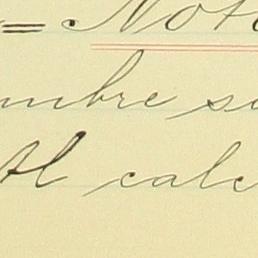 = Not
mbre s
Al calc